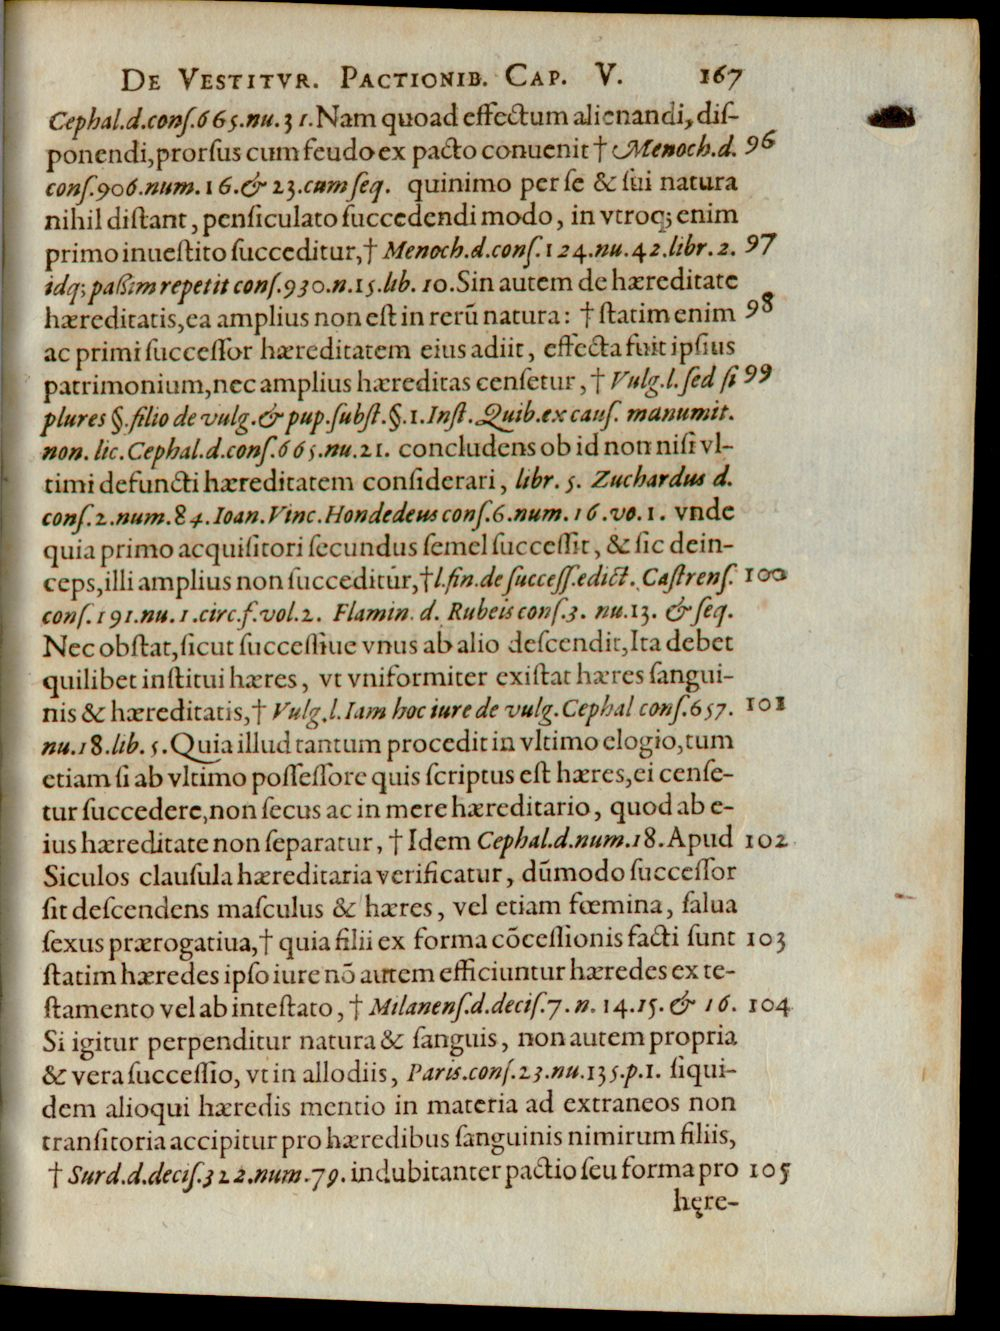 DE VESTITVR. PACTIONIB. CAP. V. 167
Cephal.d.conſ.665.nu.31.Nam quoad effectum alienandi, diſ-
ponendi,prorſus cum feudo ex pacto conuenit † Menoch.d. 96
conſ.906.num.16.& 23.cum ſeq. quinimo per ſe & ſui natura
nihil diſtant, penſiculato ſuccedendi modo, in vtroq; enim
primo inueſtito ſucceditur,† Menoch.d.conſ.124.nu.42.libr.2. 97
idq; paßim repetit conſ.930.n.15.lib.10.Sin autem de hæreditate
hæreditatis,ea amplius non eſt in rerũ natura: † ſtatim enim 98
ac primi ſucceſſor hæreditatem eius adiit, effecta fuit ipſius
patrimonium,nec amplius hæreditas cenſetur, † Vulg.l.ſed ſi 99
plures §.filio de vulg.& pup.ſubſt.§.1.Inſt.Quib.ex cauſ. manumit.
non.lic.Cephal.d.conſ.665.nu.21. concludens ob id non niſi vl-
timi defuncti hæreditatem conſiderari, libr.5. Zuchardus d.
conſ.2.num.84.Ioan.Vinc.Hondedeus conſ.6.num.16.vo.1. vnde
quia primo acquiſitori ſecundus ſemel ſucceſſit, & ſic dein-
ceps,illi amplius non ſucceditur,†l.fin.de ſucceſſ.edict. Caſtrenſ. 100
conſ.191.nu.1.circ.f.vol.2. Flamin. d. Rubeis conſ.3. nu.13. & ſeq.
Nec obſtat,ſicut ſucceſſiue vnus ab alio deſcendit,Ita debet
quilibet inſtitui hæres, vt vniformiter exiſtat hæres ſangui-
nis & hæreditatis,† Vulg.l.Iam hoc iure de vulg.Cephal conſ.657. 101
nu.18.lib.5.Quia illud tantum procedit in vltimo elogio,tum
etiam ſi ab vltimo poſſeſſore quis ſcriptus eſt hæres,ei cenſe-
tur ſuccedere,non ſecus ac in mere hæreditario, quod ab e-
ius hæreditate non ſeparatur, † Idem Cephal.d.num.18.Apud 102
Siculos clauſula hæreditaria verificatur, dũmodo ſucceſſor
ſit deſcendens maſculus & hæres, vel etiam fœmina, ſalua
ſexus prærogatiua,† quia filii ex forma cõceſſionis facti ſunt 103
ſtatim hæredes ipſo iure nõ autem efficiuntur hæredes ex te-
ſtamento vel ab inteſtato, † Milanenſ.d.deciſ.7.n.14.15.& 16. 104
Si igitur perpenditur natura & ſanguis, non autem propria
& vera ſucceſſio, vt in allodiis, Paris.conſ.23.nu.135.p.1. ſiqui-
dem alioqui hæredis mentio in materia ad extraneos non
tranſitoria accipitur pro hæredibus ſanguinis nimirum filiis,
† Surd.d.deciſ.322.num.79. indubitanter pactio ſeu forma pro 105
hęre-